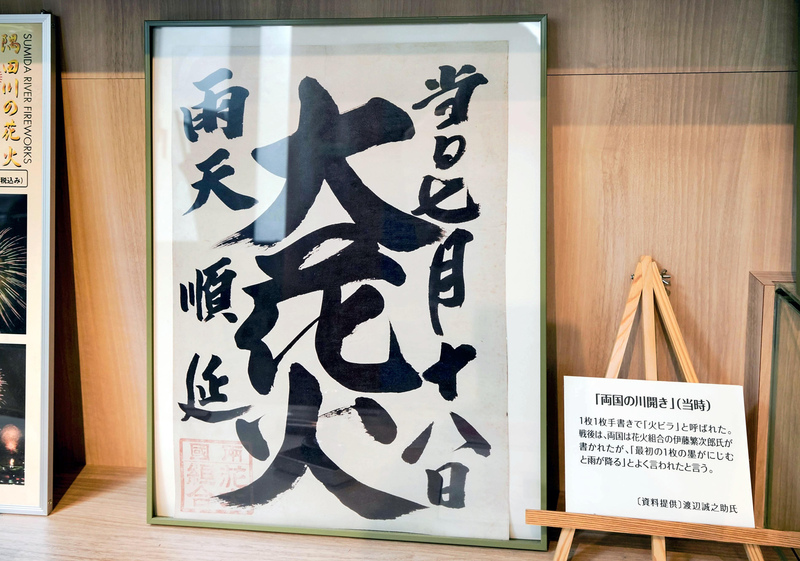 隅田川の花火
SUMIDA RIVER FIREWORKS
税込み)
当日七月十八日
大花火
雨天順延
國組合
「両国の川開き」(当時)
1枚1枚手書きで「火ビラ」と呼ばれた。
戦後は、両国は花火組合の伊藤繁次郎氏が
書かれたが、「最初の1枚の墨がにじむ
と雨が降る」とよく言われたと言う。
〔資料提供〕渡辺誠之助氏